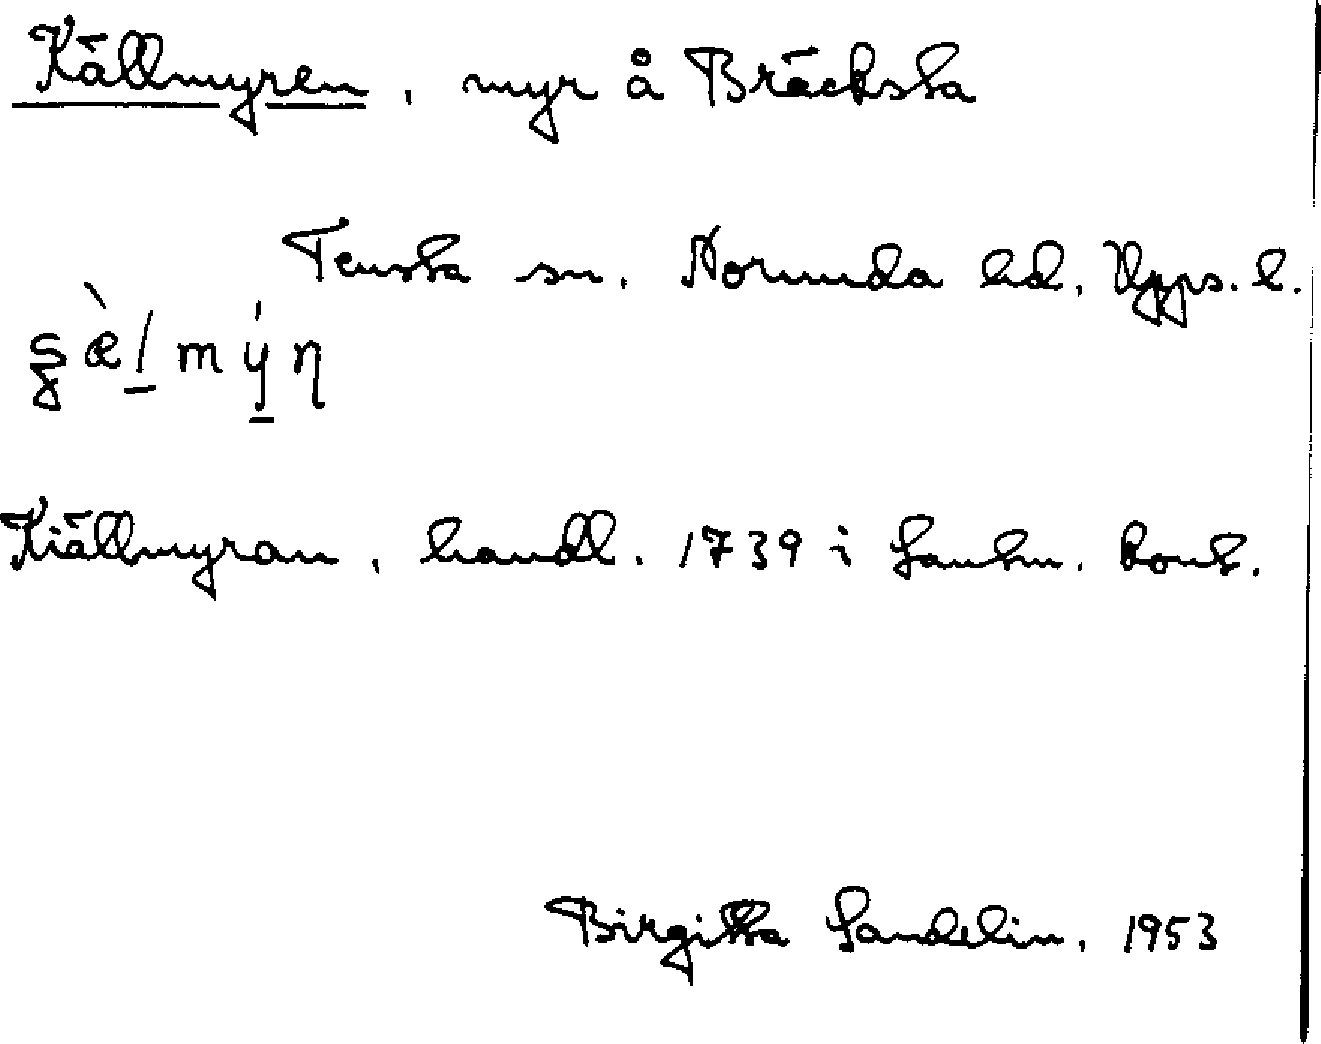 Källmyren, myr å Bräcksta
Tensta sn. Norunda hd. Upps. l.
Kiällmyran, handl. 1739 i Lantm. kont.
Birgitta Sandelin. 1953